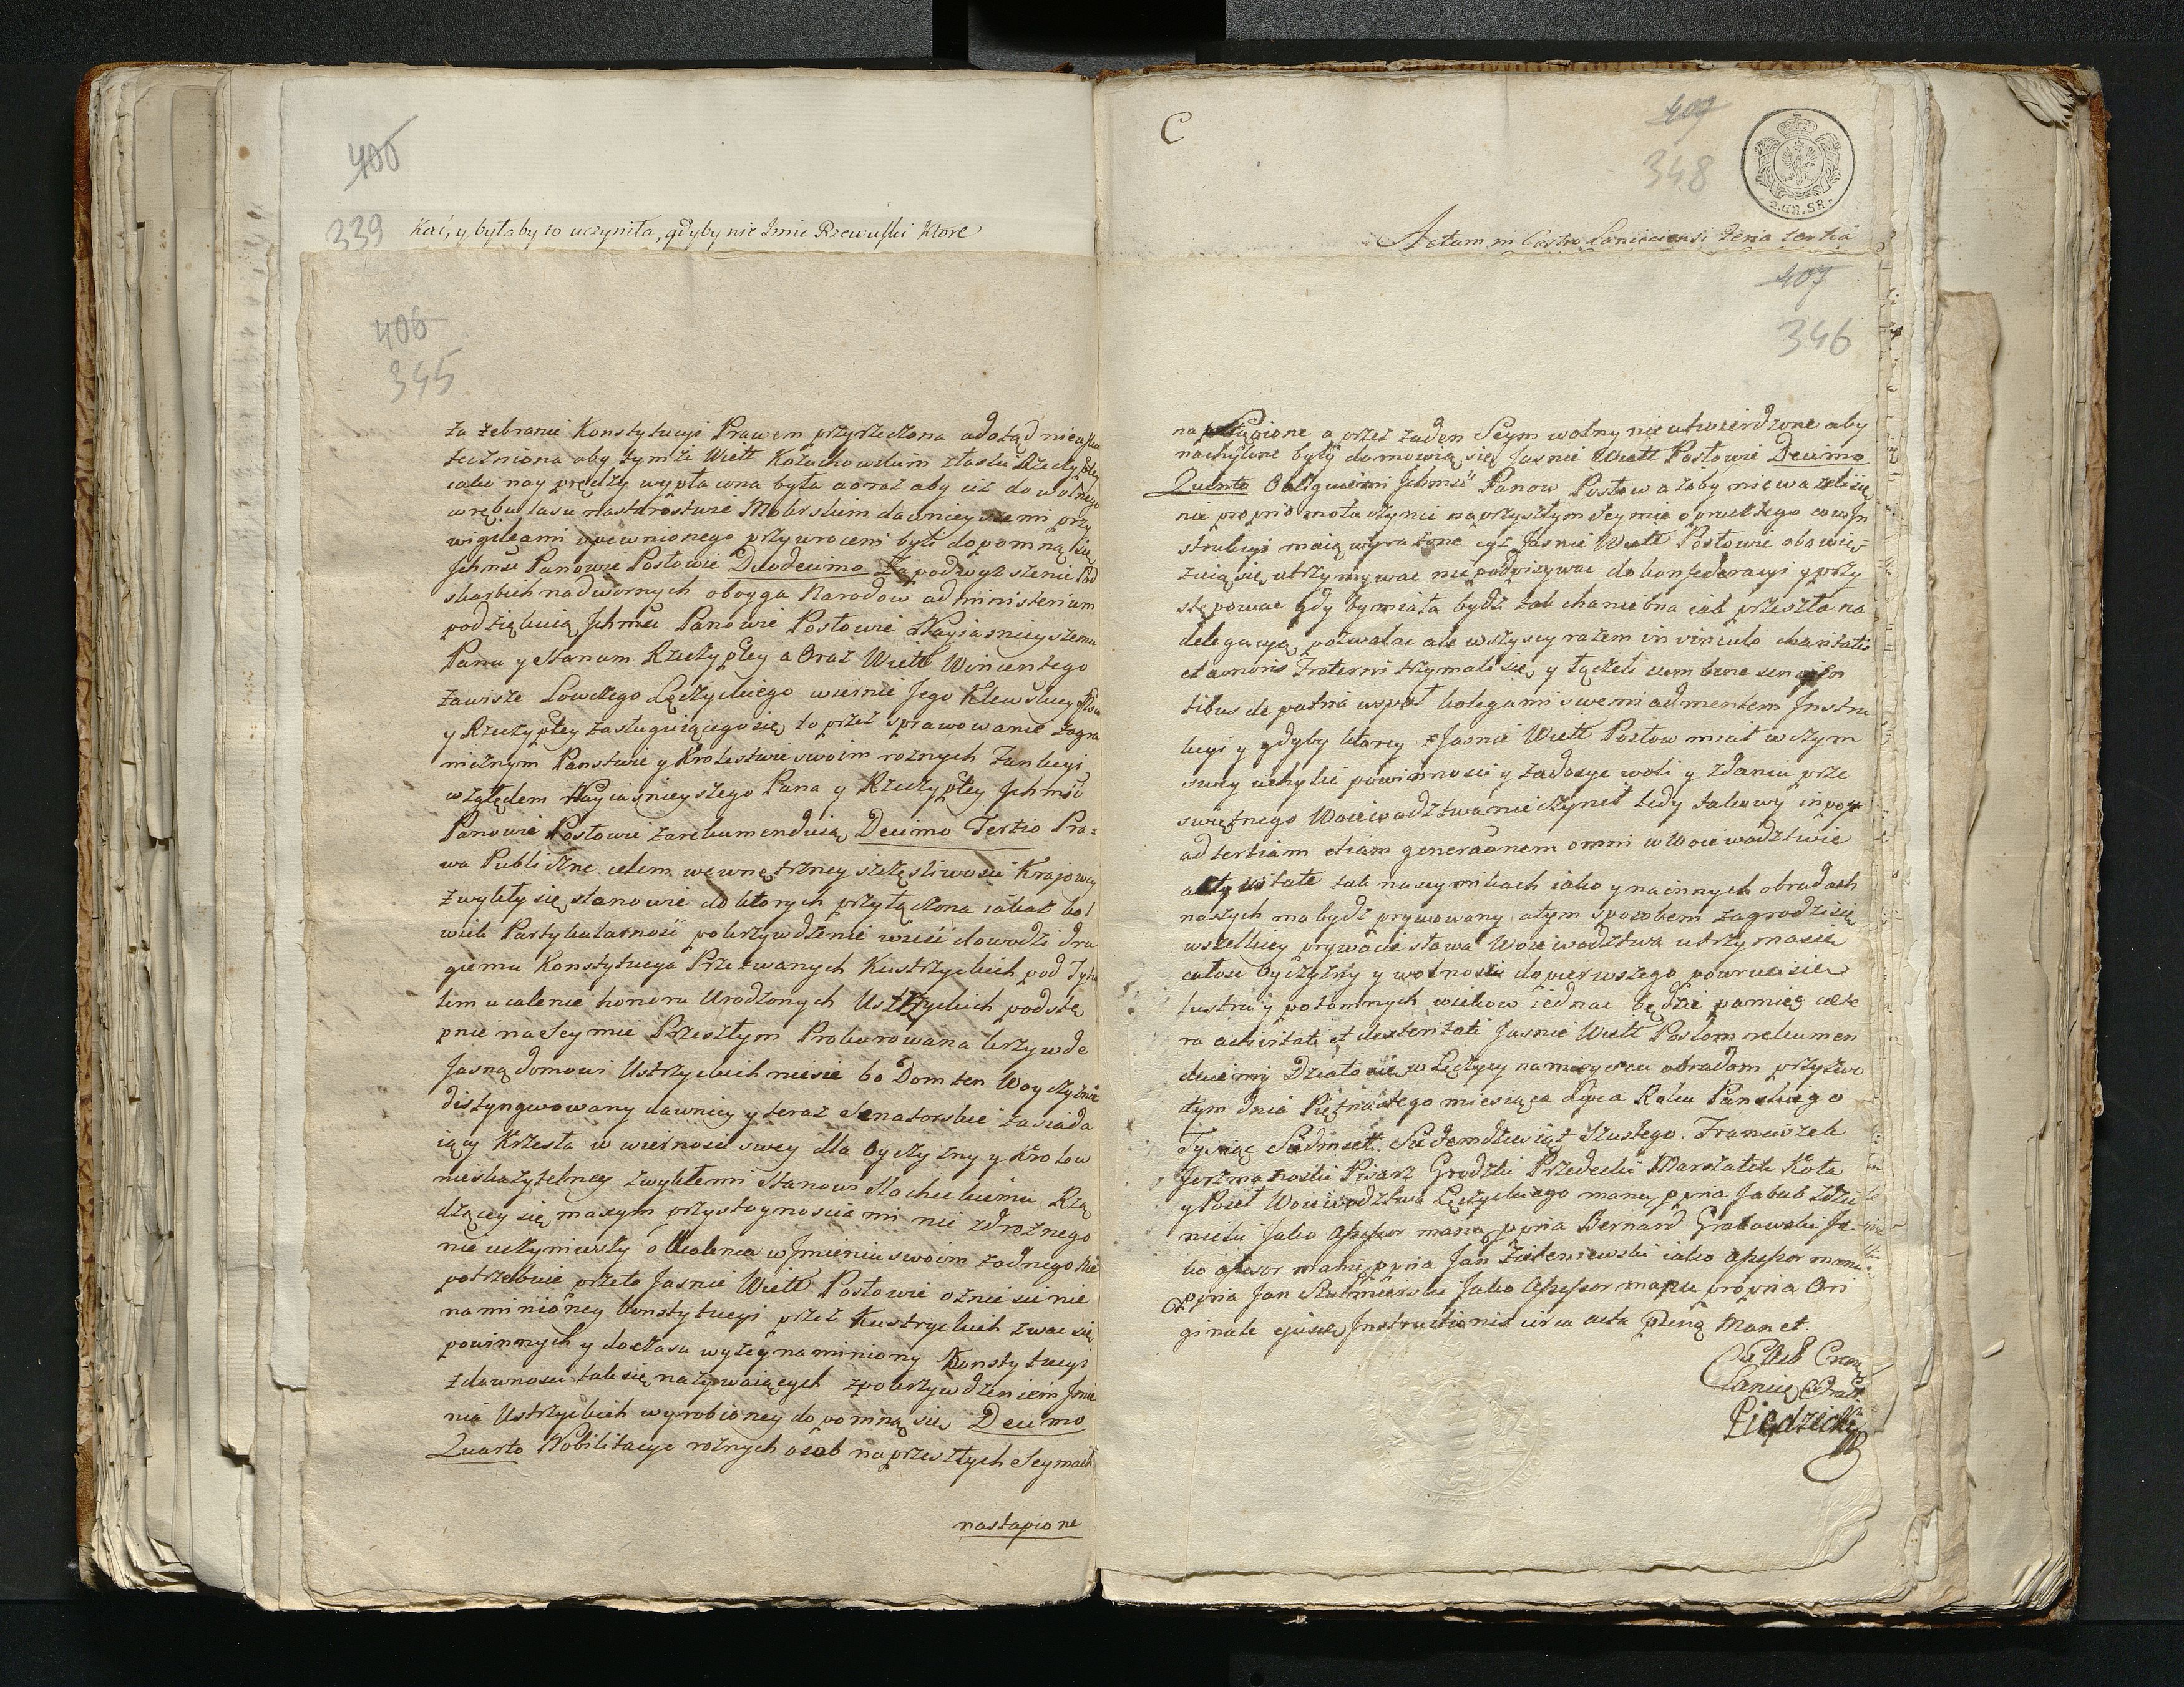 406
339 Kać, y byłaby to uczyniła, gdyby nie Imie Rzewuski ktore
406
345
za zebranie Konstytucyi Prawem przyrzeczona adotąd
teczniona aby tymże Wielł Kożuchowskim złaski Rzeczyptey
iako nay prędzey wypłacona była aoraz aby ciż do wolnego
wrębu lasu wastarostwie dawnieyszemi przy
wigileami upewnionego przywroceni byli dopomną się
Jchmść Panowie Posłowie Duodecimo Za podwyższenie Pod
skarbich nadwornych oboyga Narodow ad ministerium
podziękuią Jchmść Panowie Posłowie Nayiasnieyszemu
Panu y stanom Rzeczyptey a Oraz Wielł Wincentego
Zawisze Lowczego Łęczyckiego wiernie Jego Krlewskiey
y Rzeczyptey zasługuiącego się to przez sprawowanie zagra
nicznym Panstwie y Krolestwie swoim rożnych Funkcyi
względem Nayiasnieyszego Pana y Rzeczyptey Jchmść
Panowie Posłowie zarekumenduią Decimo Tertio Pra=
wa Publiczne celem wewnętrzney szczęsliwosci Krajowey
zwykły się stanowić do ktorych przyłączona iakaż kol
wiek Partykularność pokrzywdzenie wieść dowodzi dru
giemu Konstytucya Przezwanych Kustrzyckich pod Tytu
łem ucalenie honoru Urodzonych Ustrzyckich podstę
pnie na Seymie Przeszłym Prokurowana krzywde
Jasną domowi Ustrzyckich niesie bo Dom ten Woyczyznie
distyngwowany dawniey y teraz Senatorskie zasiada
iący Krzesła w wiernosci swey dla Oyczyzny y Krolow
nieskazytelney zwykłemi stanowi Slacheckiemu Rzą
dzący się maxym przystoynosciami nic zdrożnego
nie uczyniwszy o Ucalenia w Jmieniu swoim żadnego nie
potrzebuie przeto Jasnie Wielł Posłowie ozniesienie
naminioney konstytucyi przez Kustryckich zwać się
powinnych y doczasu wyżey naminiony Konstytucyi
zdawnosci tak się nazywaiących zpokrzywdzeniem Jmie
nia Ustrzyckich wyrobioney dopomną się Decimo
Quarto Nobilitacye rożnych osob na przeszłych Seymach
nastąpione
C
407
348
2.GR.SR.
Actum in Castro Lanciciensi Feria tertia
407
346
nastąpione a przez żaden Seym wolny nieutwierdzone aby
nachylone były domowią się Jasnie Wielł Posłowie Decimo
Quinto Obliguiemi Jchmść Panow Posłow ażeby nieważyli się
nic proprio motu czynić naprzyszłym Seymie oprucz tego co w Jn
strukcyi maią wyrażone cyż Jasnie Wielł Posłowie obowię
zuią się utrzymywać nie podpisywać do konfederacyi y przy
stępować gdy by miała bydź tak chaniebna iak przeszła na
delegacyą pozwalać ale wszyscy razem in vinculo charitatis
et amoris Fraterni trzymali się y łączyli cum bene sen
tibus de patria wspoł kolegami swemi ad mentem Jnstru
kcyi y gdyby ktory z Jasnie Wielł Posłow miał w czym
swey uchylić powinnosci y zadosyć woli y zdaniu prze
swiętnego Woiewodztwa nie czynić tedy takowy in post
ad tertiam etiam generaonem omni w Woiewodztwie
activitate tak na seymikach iako y na innych obradach
naszych ma bydź prywowany atym sposobem zagrodzi się
wszelkiey prywacie sława Woiewodztwa utrzyma się
całosć Oyczyzny y wolnosci do pierwszego powruci się
lustru y potomnych wiekow iednać będzie pamięć caete
ra activitati et dexteritati Jasnie Wielł Posłom rekumen
duiemy Działo się w Łęczycy na mieyscu obradom przyzwo
itym dnia Piętnastego miesiąca Lipca Roku Panskiego
Tysiąc Siedmset Siedemdziesiąt Szustego. Franciszek
Jerzmanoski Pisarz Grodzki Przedecki Marszałek Koła
y Poseł Woiewodztwa Łęczyckiego manu ppria Jakub
nicki Jako Assessor manu ppria Bernard Grabowski Ja
ko Assesor manu ppria Jan iako Assessor manu
ppria Jan Jako Assessor manu propria Ori
ginale ejusdem Jnstructionis circa acta psena Manet.
Ex Actis Castr
Lancic Extrad
Piędzicki